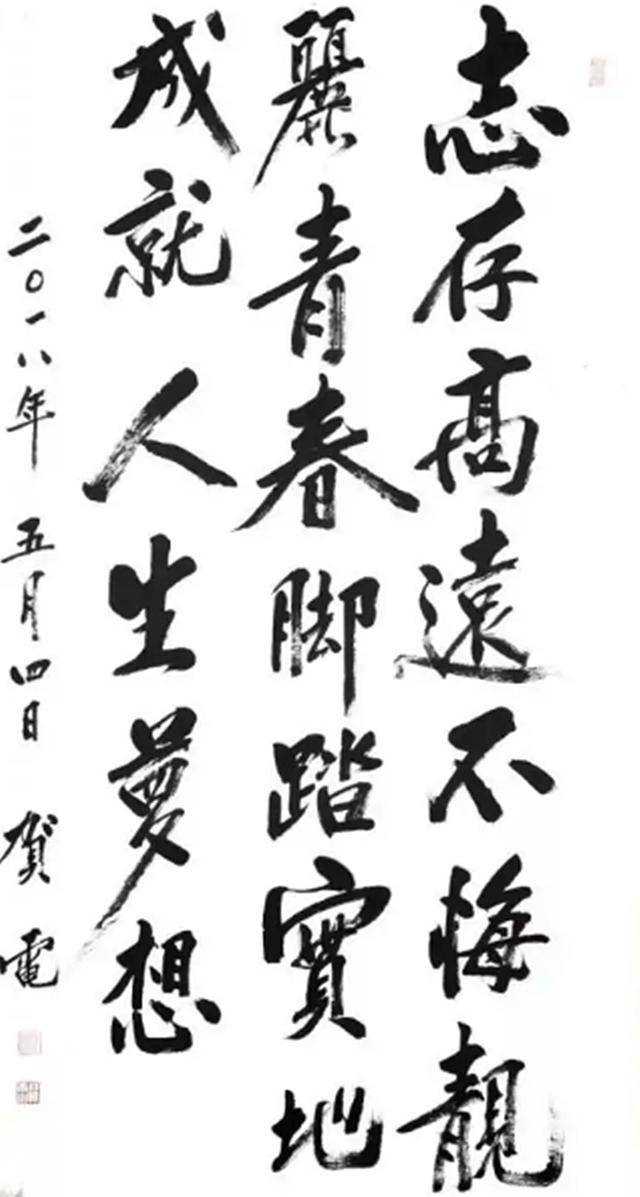 志存高遠不悔靚
麗青春脚踏實地
成就人生夢想
二〇一八年五月四日賀電